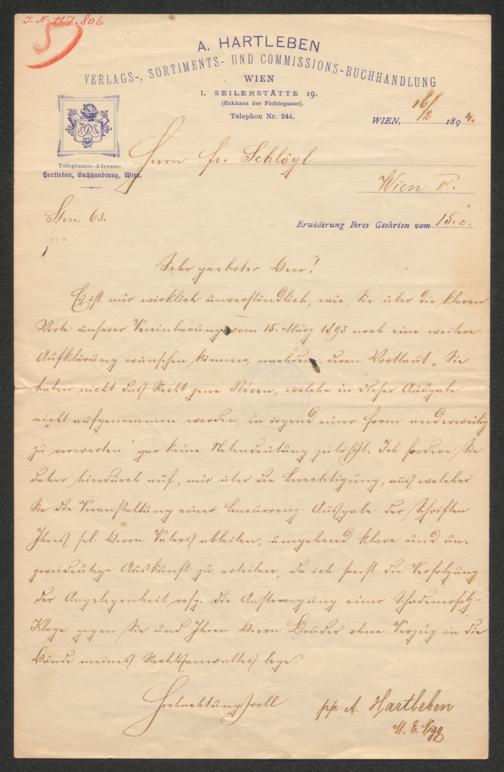 J. N. 117.806
A. HARTLEBEN
VERLAGS-, SORTIMENTS- UND COMMISSIONS-BUCHHANDLUNG
WIEN
I. SEILERSTÄTTE 19.
(Eckhaus der Fichtegasse).
Telephon Nr. 244.
WIEN, 16/2 1894.
Telegramm-Adresse:
Hartleben, Buchhandlung, Wien.
Herrn Fr. Schlögl
Wien
63.
Erwiderung Ihres Geehrten vom 15. c.
Sehr geehrter Herr!
Es ist mir wirklich unverständlich, wie Sie über die klaren
Worte unserer Vereinbarung vom 15. März 1893 noch eine weitere
Aufklärung wünschen können, deren Wortlaut „Sie
haben nicht das Recht jene Skizzen, welche in dieser Ausgabe
nicht aufgenommen werden, in irgend einer Form anderweitig
zu verwerten" gar keine Nebendeutung zuläßt. Ich fordere Sie
daher hierdurch auf, mir über die Berechtigung, aus welcher
Sie die Veranstaltung einer Concurrenz-Ausgabe der Schriften
Ihres sel. Herrn Vaters ableiten, umgehend klare und un-
zweideutige Auskunft zu erteilen, da ich sonst die Verfolgung
der Angelegenheit resp. die Anstrengung einer Schadenersatz-
Klage gegen Sie und Ihren Herrn Bruder ohne Verzug in die
Hände meines Rechtsanwaltes lege.
Hochachtungsvoll
pp. A. Hartleben